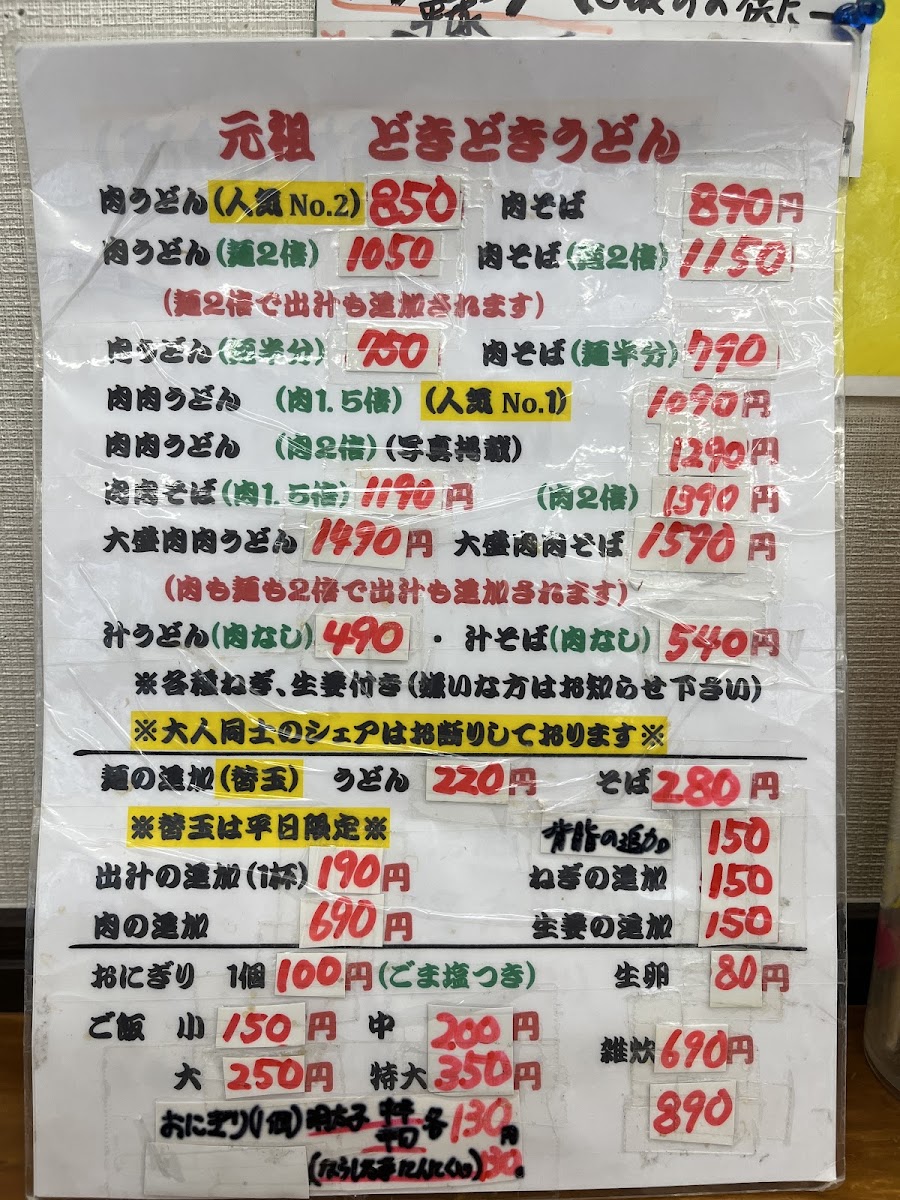 元祖 どきどきうどん
肉うどん(人気 No.2) 850 肉そば 890円
肉うどん(麺2倍) 1050 肉そば(麺2倍) 1150
(麺2倍で出汁も追加されます)
肉うどん(麺半分) 750 肉そば(麺半分) 790
肉肉うどん (肉1.5倍) (人気 No.1) 1090円
肉肉うどん (肉2倍)(写真掲載) 1290円
肉肉そば(肉1.5倍) 1190円 (肉2倍) 1390円
大盛肉肉うどん 1490円 大盛肉肉そば 1590円
(肉も麺も2倍で出汁も追加されます)
汁うどん(肉なし) 490 ・ 汁そば(肉なし) 540円
※各種ねぎ、生姜付き(嫌いな方はお知らせ下さい)
※大人同士のシェアはお断りしております※
麺の追加(替玉) うどん 220円 そば 280円
※替玉は平日限定※ 背脂の追加 150
出汁の追加(1杯) 190円 ねぎの追加 150
肉の追加 690円 生姜の追加 150
おにぎり 1個 100円(ごま塩つき) 生卵 80円
ご飯 小 150円 中 200円 雑炊 690円
大 250円 特大 350円 890
おにぎり(1個) 明太子 各130円
にんにく 130